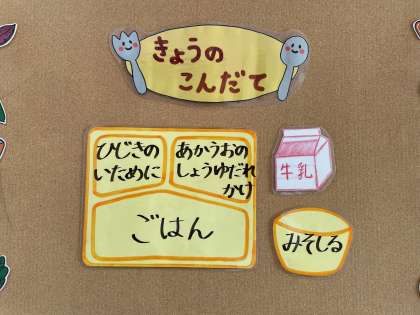 きょうの
こんだて
ひじきの
いために
あかうおの
しょうゆだれ
かけ
牛乳
ごはん
みそしる